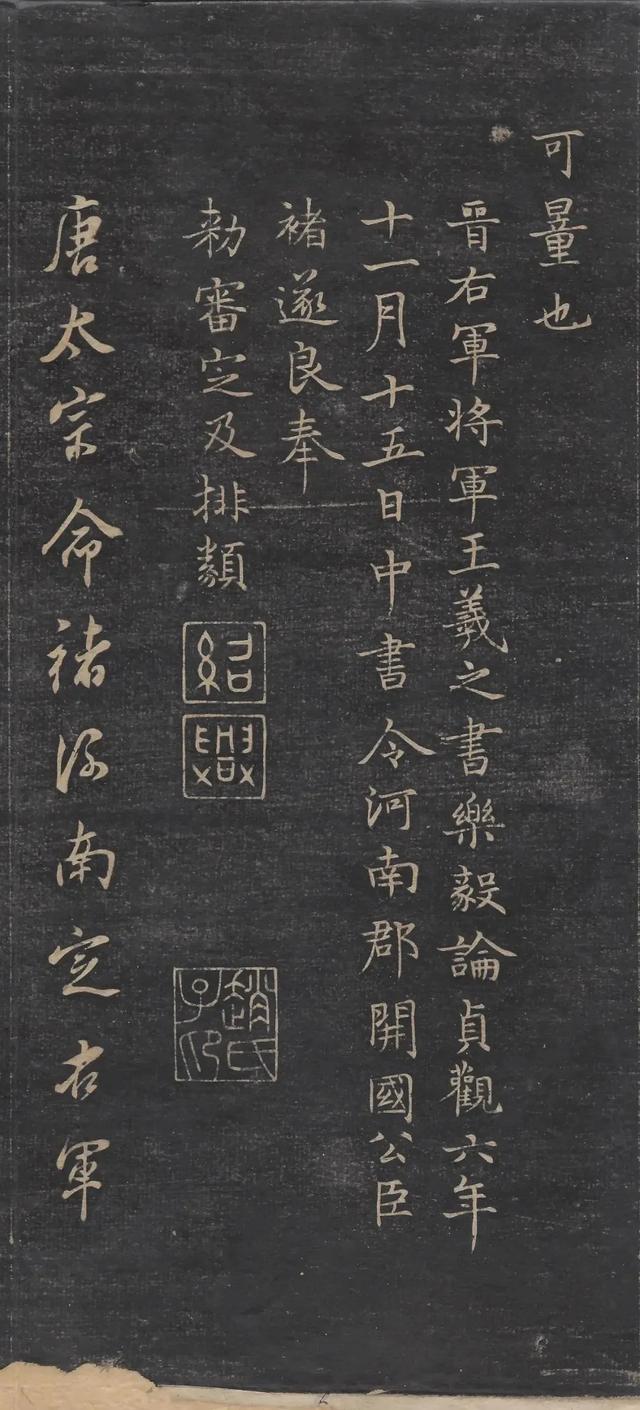 可量也
晋右軍将軍王羲之書樂毅論貞觀六年
十一月十五日中書令河南郡開國公臣
褚遂良奉
勑審定及排類
紹
興
趙氏
子印
唐太宗命褚河南定右軍